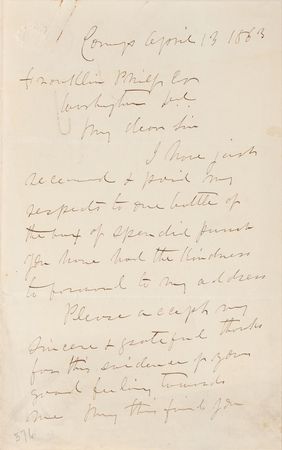 Camp April 13 1863
Franklin Philp Esq
Washington D.C.
My dear Sir
I have just
received & paid my
respects to one bottle of
the box of splendid punch
you have had the kindness
to forward to my address
Please accept my
sincere & grateful thanks
for this evidence of your
good feeling towards
me May this find you